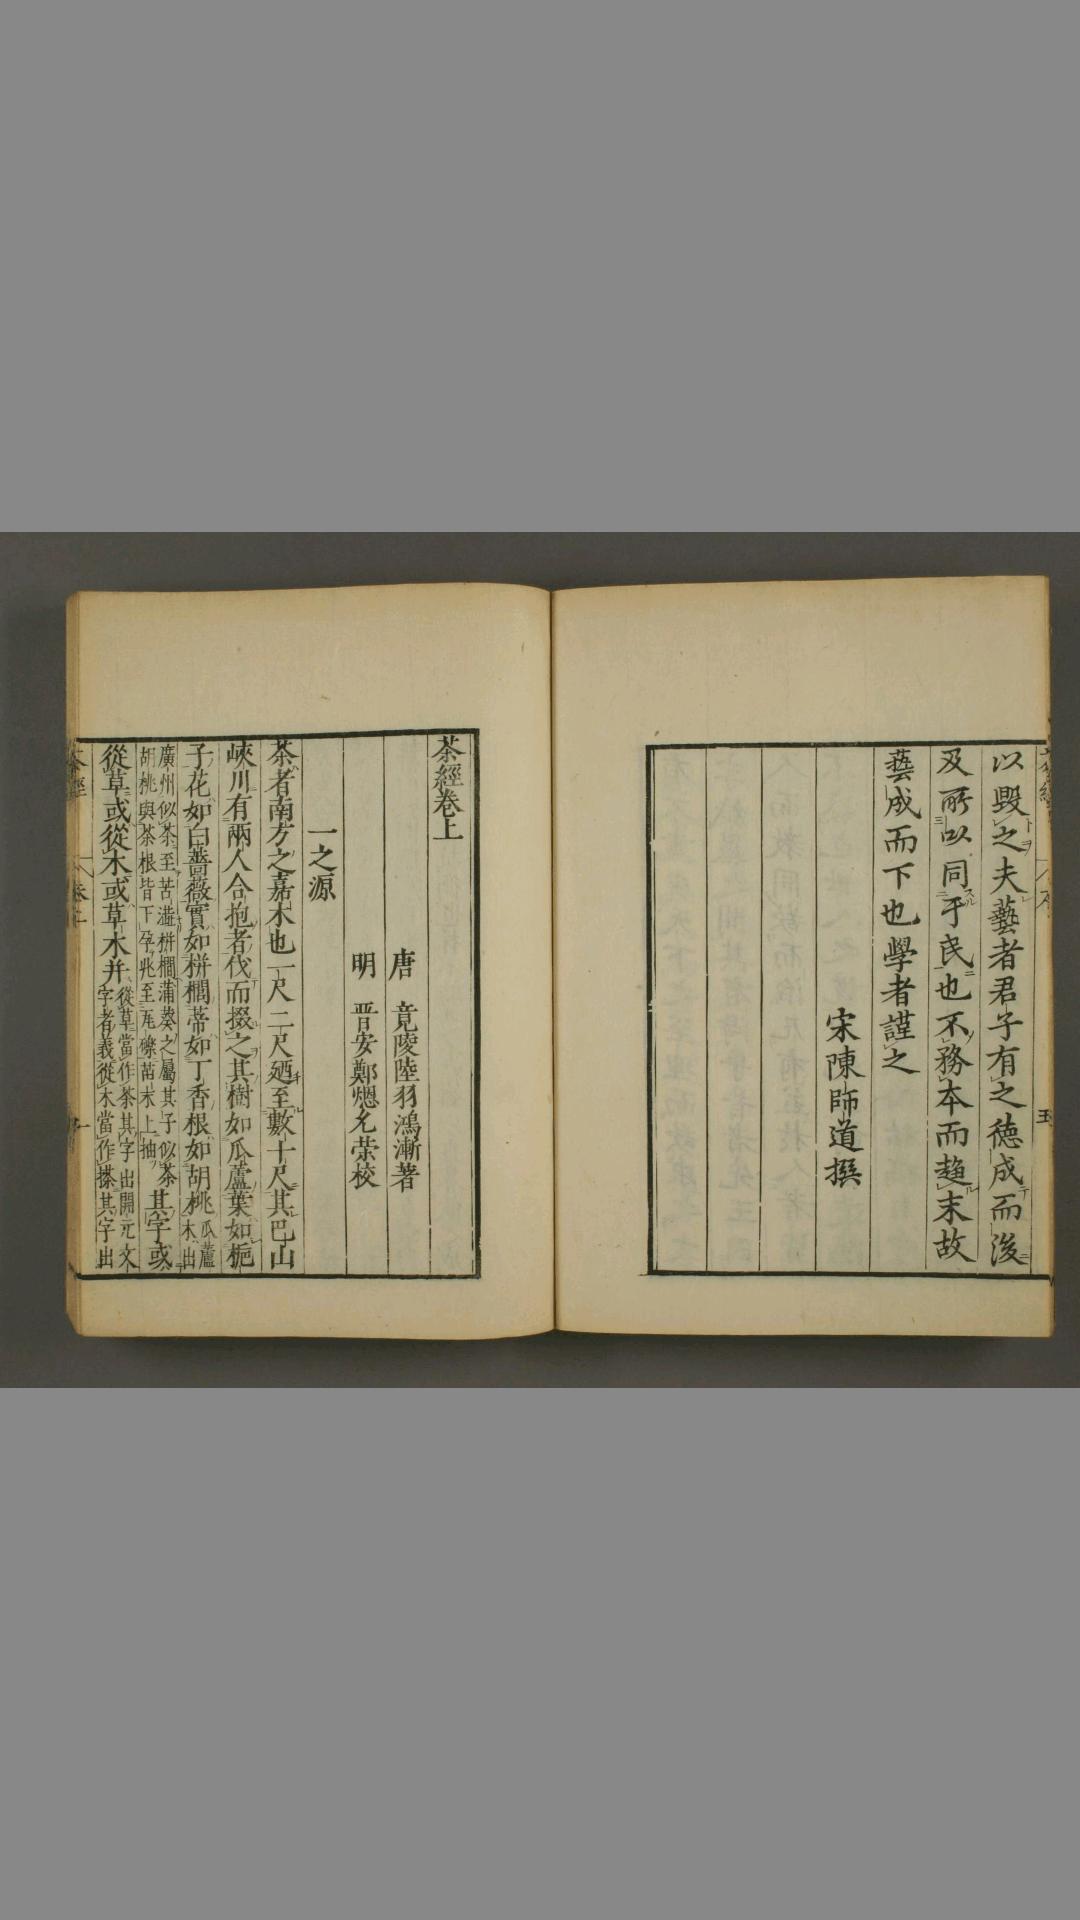 以毀之夫藝者君子有之德成而後
及所以同于民也不務本而趨末故
藝成而下也學者謹之
宋陳師道撰
茶經卷上
唐 竟陵陸羽鴻漸著
明 晉安鄭熜允榮校
一之源
茶者南方之嘉木也一尺二尺廼至數十尺其巴山
峽川有兩人合抱者伐而掇之其樹如瓜蘆葉如梔
子花如白薔薇實如栟櫚蒂如丁香根如胡桃瓜蘆木出
廣州似茶至苦澁栟櫚蒲葵之屬其子似茶胡桃與茶根皆下孕兆至瓦礫苗木上抽其字或
從草或從木或草木并從草當作茶其字出開元文字者義從木當作𣘻其字出
茶經